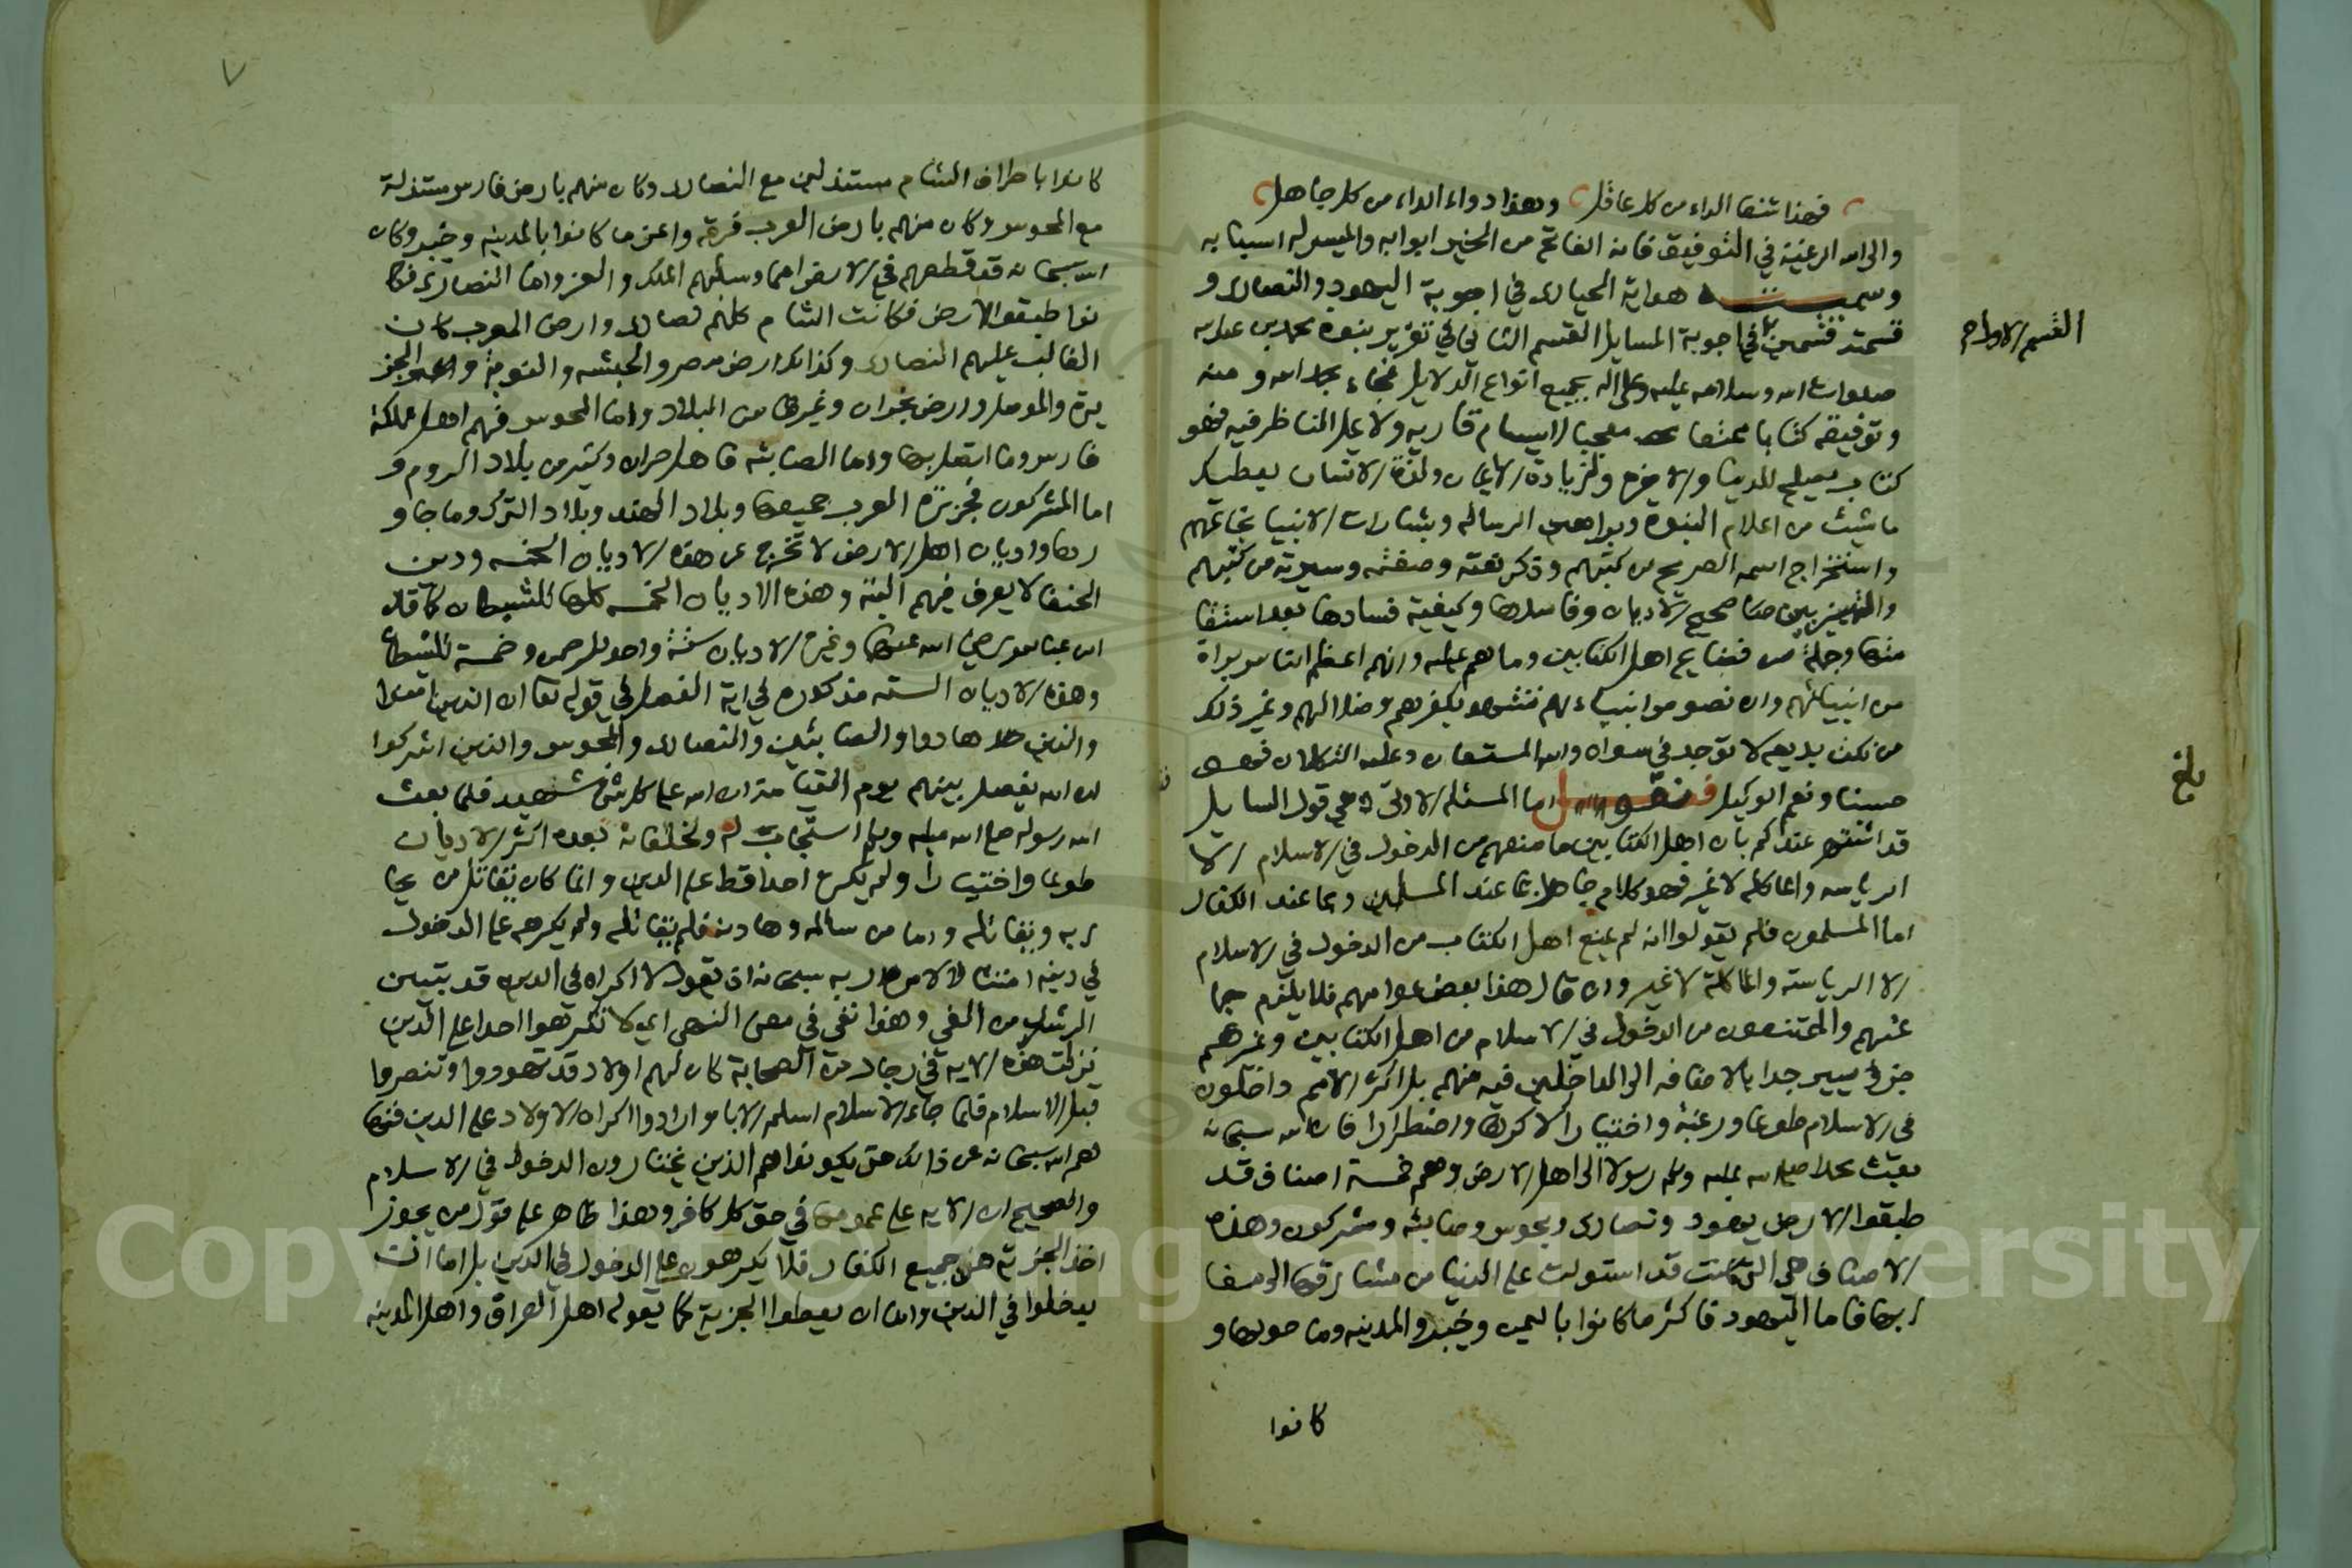 فهذا شفا الداء من كل عاقل وهذا دواء الداء من كل جاهل
والى الله الرغبة في التوفيق فانه الفاتح من الخير ابوابه والميسر له اسبابه
وسميته هداية الحيارى في اجوبة اليهود والنصارى و
قسمته قسمين في اجوبة المسايل القسم الثاني في تقرير نبوة محمد بن عبد الله
القسم الاول
صلوات الله وسلامه عليه وعلى اله بجميع انواع الدلايل فجاء بحمد الله ومنه
وتوفيقه كتابا ممتعا معجبا لا يسام قاريه ولا يمل المناظر فيه فهو
كتاب يصلح للدنيا والاخره ولزيادة الايمان ولذة الانسان يعطيك
ما شيت من اعلام النبوة وبراهين الرساله وبشارات الانبيا بخاتمهم
واستخراج اسمه الصريح من كتبهم وذكر نعته وصفته وسيرته من كتبهم
والتمييز بين صحيح الاديان وفاسدها وكيفية فسادها بعد استقا
متها وجملة من فضايح اهل الكتابين وما هم عليه وانهم اعظم الناس براة
من انبيائهم وان نصوص انبياءهم تشهد بكفرهم وضلالهم وغير ذلك
من نكت بديعه لا توجد في سواه والله المستعان وعليه التكلان فهو
حسبنا ونعم الوكيل فنقول اما المسئله الاولى وهي قول السايل
بلغ
قد اشتهر عندكم بان اهل الكتابين ما منعهم من الدخول في الاسلام الا
الرياسه والماكله لا غير فهو كلام جاهل بما عند المسلمين وبما عند الكفار
اما المسلمون فلم يقولوا انه لم يمنع اهل الكتاب من الدخول في الاسلام
الا الرياسة والماكلة لا غير وان قال هذا بعض عوامهم فلا يلزم جما
عتهم والممتنعون من الدخول في الاسلام من اهل الكتابين وغيرهم
جزؤ يسير جدا بالاضافه الى الداخلين فيه منهم بل اكثر الامم داخلون
في الاسلام طوعا ورغبة واختيارا لا كرها واضطرارا فان الله سبحانه
بعث محمدا صلى الله عليه وسلم رسولا الى اهل الارض وهم خمسة اصناف قد
طبقوا الارض يهود ونصارى ومجوس وصابئه ومشركون وهذه
الاصناف هي التي كانت قد استولت على الدنيا من مشارقها الى مغا
ربها فاما اليهود فاكثر ما كانوا باليمن وخيبر والمدينه وما حولها و
كانوا
٧
كانوا باطراف الشام مستذلين مع النصارى وكان منهم بارض فارس مستذلة
مع المجوس وكان منهم بارض العرب فرقه واعز ما كانوا بالمدينه وخيبر وكان
الله سبحانه قد قطعهم في الارض امما وسلبهم الملك والعز واما النصارى فكا
نوا طبقوا الارض فكانت الشام كلهم نصارى وارض المغرب كان
الغالب عليهم النصارى وكذلك ارض مصر والحبشه والنوبة والجز
يرة والموصل وارض نجران وغيرها من البلاد واما المجوس فهم اهل مملكة
فارس وما اتصل بها واما الصابئه فاهل حران وكثير من بلاد الروم و
اما المشركون فجزيرة العرب جميعها وبلاد الهند وبلاد الترك وما جاو
رها واديان اهل الارض لا تخرج عن هذه الاديان الخمسه ودين
الحنفا لا يعرف فيهم البتة وهذه الاديان الخمسه كلها للشيطان كما قال
ابن عباس رضي الله عنهما وغيره الاديان ستة واحد للرحمن وخمسة للشيطان
وهذه الاديان الستة مذكورة في اية الفصل في قوله تعا ان الذين امنوا
والذين هادوا والصابئين والنصارى والمجوس والذين اشركوا
ان الله يفصل بينهم يوم القيامة ان الله على كل شئ شهيد فلما بعث
الله رسوله صلى الله عليه وسلم استجاب له ولخلفائه بعده اكثر الاديان
طوعا واختيارا ولم يكره احدا قط على الدين وانما كان يقاتل من يحا
ربه ويقاتله واما من سالمه وهادنه فلم يقاتله ولم يكرهه على الدخول
في دينه امتثالا لامر ربه سبحانه اذ يقول لا اكراه في الدين قد تبين
الرشد من الغي وهذا نفي في معنى النهي اي لا تكرهوا احدا على الدين
نزلت هذه الايه في رجال من الصحابة كان لهم اولاد قد تهودوا وتنصروا
قبل الاسلام فلما جاء الاسلام اسلم الابا وارادوا اكراه الاولاد على الدين فنها
هم الله سبحانه عن ذلك حتى يكونوا هم الذين يختارون الدخول في الاسلام
والصحيح ان الايه على عمومها في حق كل كافر وهذا ظاهر على قول من يجوز
اخذ الجزية من جميع الكفار فلا يكرهون على الدخول في الدين بل اما ان
يدخلوا في الدين واما ان يعطوا الجزية كما يقوله اهل العراق واهل المدينه
Copyright © King Saud University